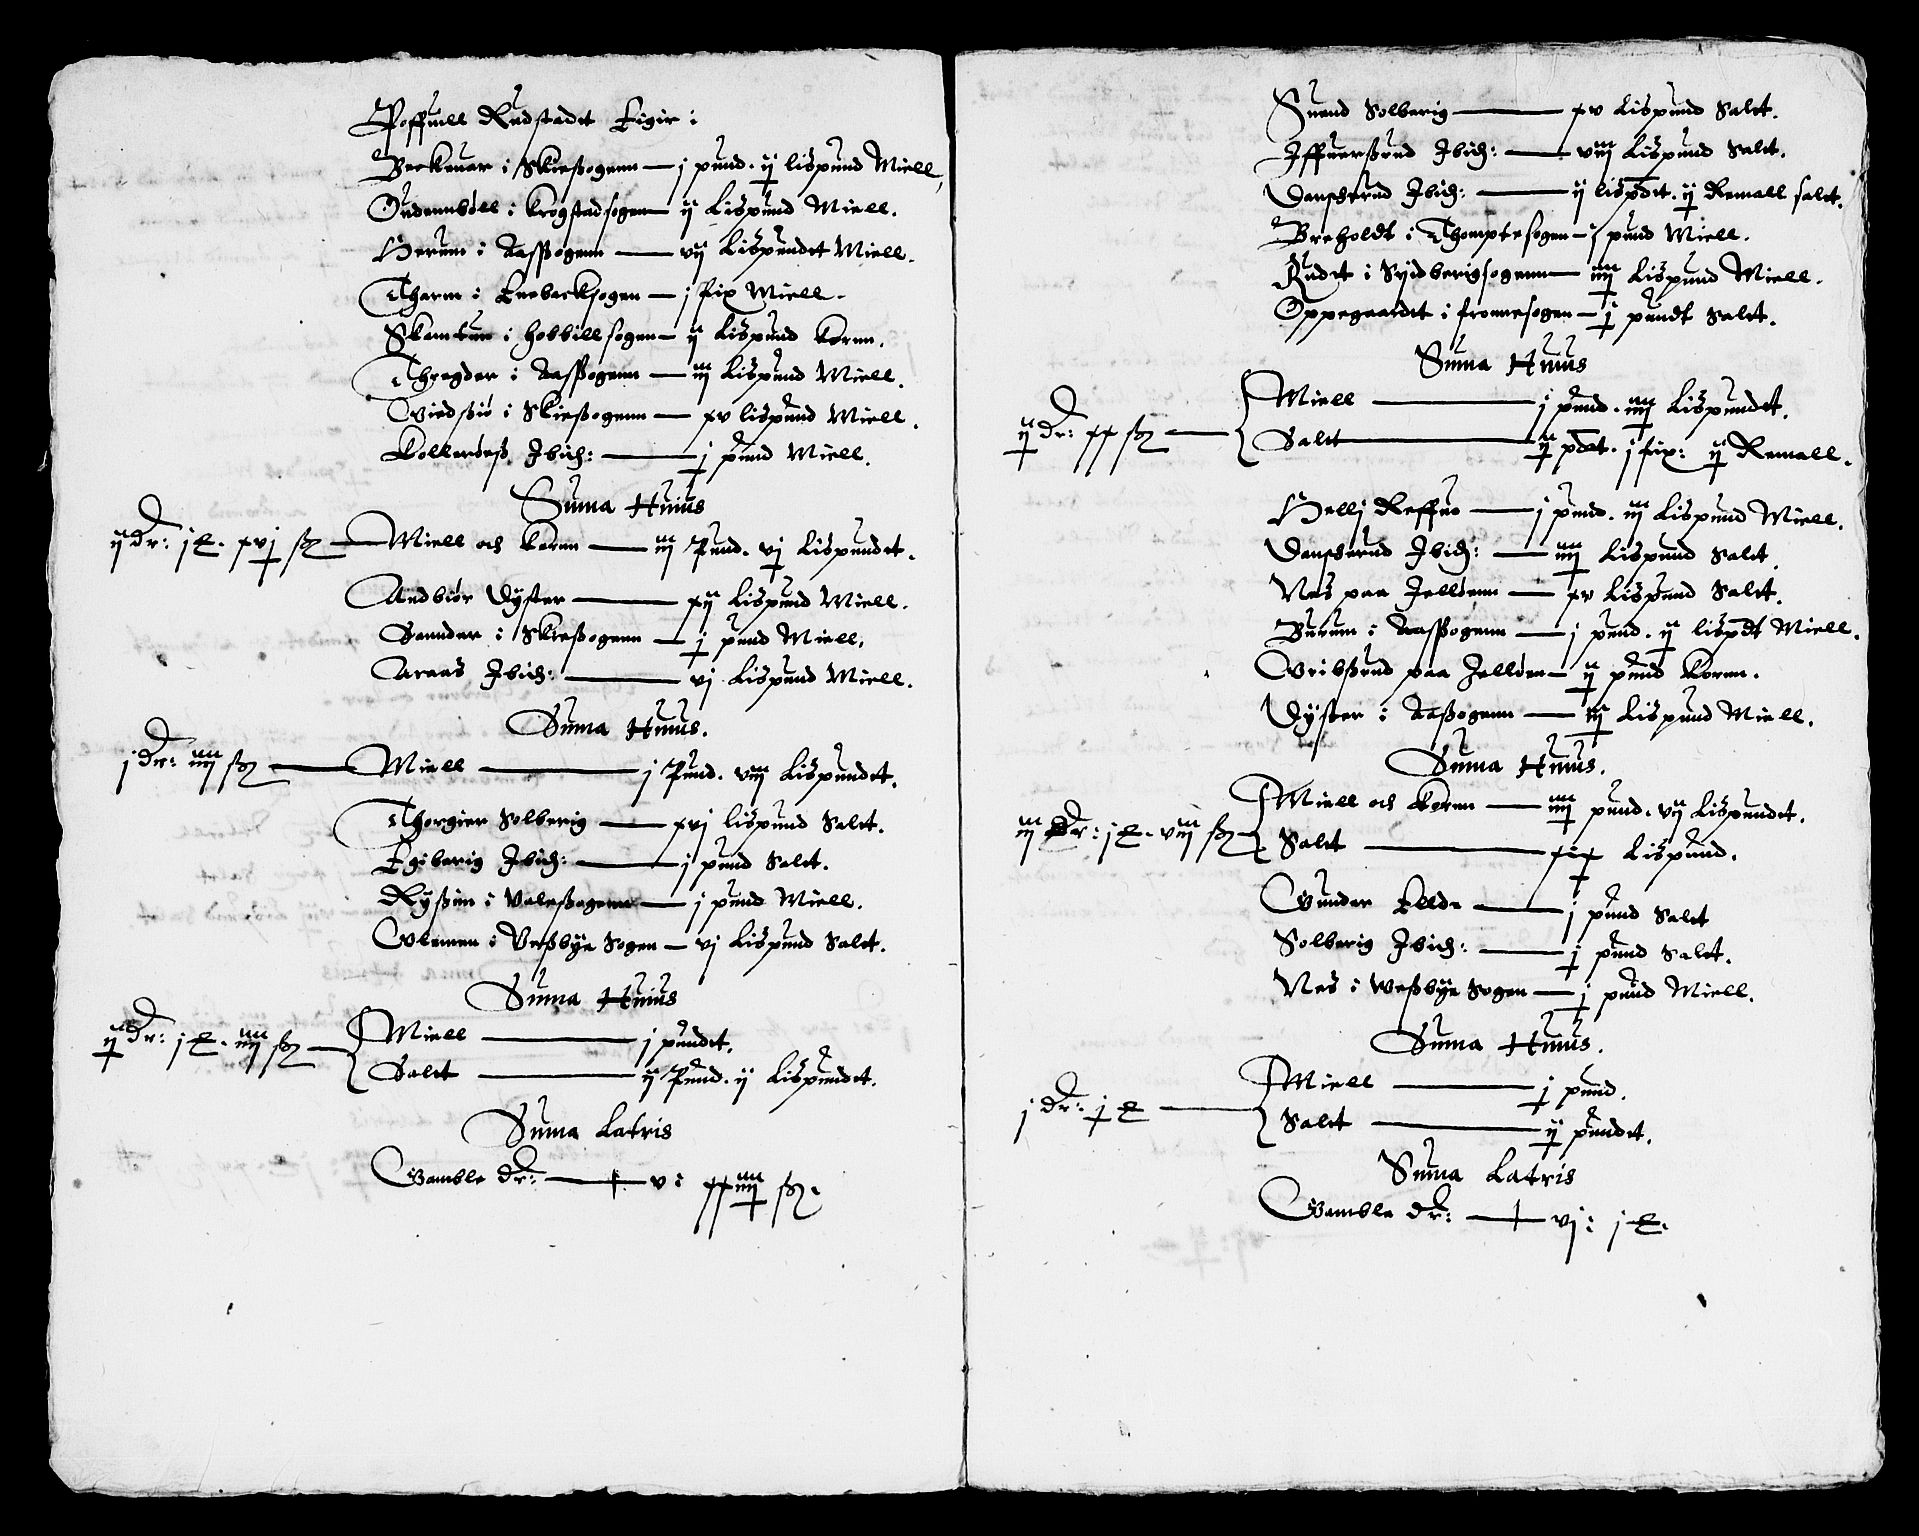 Poffuell Rudstadt Eigir :
Berkenar i Skiesogenn — j pund. ij lispund Miell,
Oudennböll i Krogstadsogen — ij Lispund Miell.
Herum i Aassogenn — vij Lispundet Miell.
Tharm i Enebacksogen — j fix Miell.
Skamtun i hobbillsogen — ij Lispund Korn.
Thregder i Aassogenn — iij Lispund Miell.
Viedsiø i Skiesogenn — xv lispund Miell.
Kollerøess. Ibid: — j pund Miell.
Suma Huius
ij dr: j £. xvj sk — Miell och Kornn — iij Pund. vj Lispundet.
Andbiør Dyster — xij Lispund Miell.
Sannder i Skiesogenn — j pund Miell.
Araas Ibid: — vj Lispund Miell.
Suma Huius.
j dr: iiij sk — Miell — j Pund. viij Lispundet.
Thorgier Solberig — xvj lispund Salt.
Egiberig Ibid: — j pund Salt.
Ryssim i Valesogenn — j pund Miell.
Vlemen i Vessbye Sogen — vj Lispund Salt.
Suma Huius
ij dr: j £. iiij sk — Miell — j pundet.
Salt — ij Pund. ij Lispundet.
Suma Latris
Gamble dr: — v: xxiiij sk.
Suend Solberig — xv Lispund Salt.
Iffuersrud Ibid: — viij Lispund Salt.
Danscherud Ibid: — ij lispdet. ij Remall salt.
Breholdt i Thomptesogen — j pund Miell.
Rudet i Syidberigsogenn — iiij Lispund Miell.
Oppegaardt i fronnesogen — j pundt Salt.
Suma Huius
ij dr: xx sk — Miell — j pund. iiij Lispundet.
Salt — ij pdet. j fix: ij Remall.
Hellj Reffue — j pund. iij Lispund Miell.
Danscherud Ibid: — iiij Lispund Salt.
Nes paa Jelløenn — xv Lispund Salt.
Burum i Aassogenn — j pund. ij lispdt Miell.
Vribsrud paa Jelløen — ij pund Kornn.
Dyster i Aassogenn — iij Lispund Miell.
Suma Huius.
iij dr: j £. viij sk — Miell och Kornn — iiij pund. vij Lispundet.
Salt — xix Lispund.
Vunder Elldr — j pund Salt
Solberig Ibid: — j pund Salt.
Nes i Wessbye Sogen — j pund Miell.
Suma Huius.
j dr: j £ — Miell — j pund.
Salt — ij pundet.
Suma Latris
Gamble dr: — vj: j £.